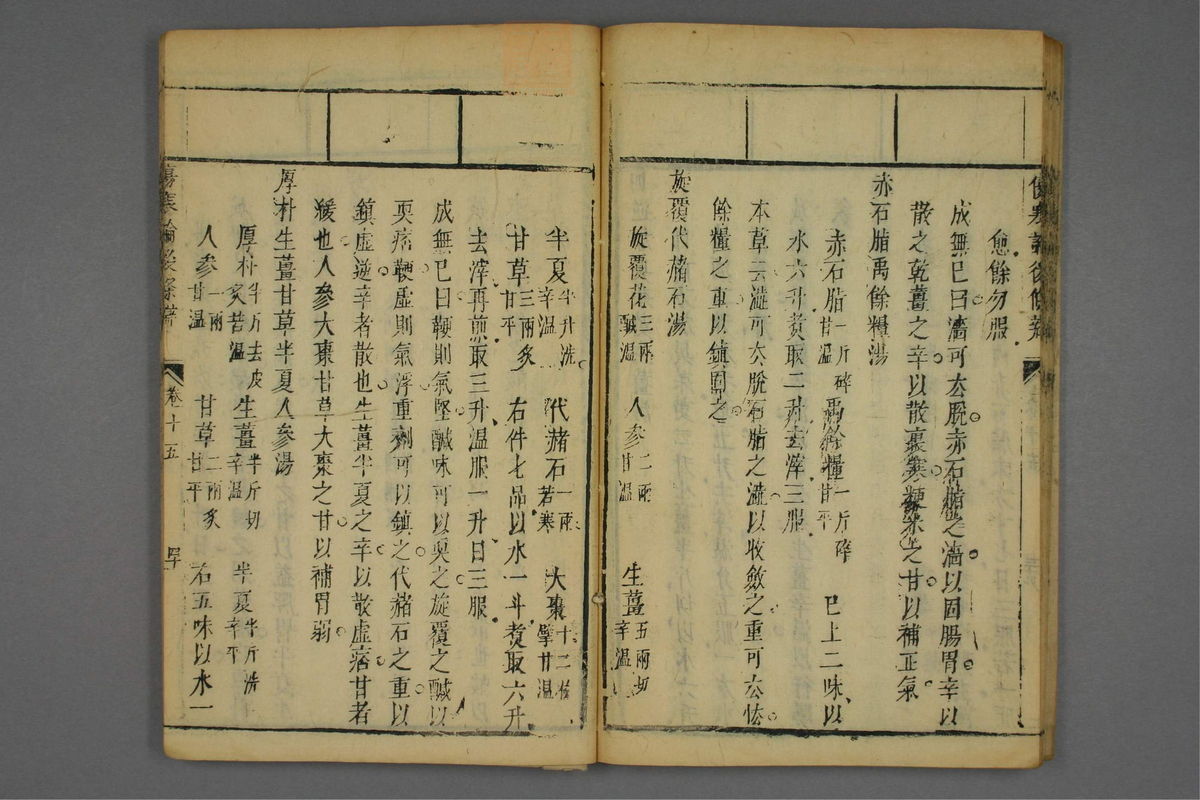 愈餘勿服
成無已曰濇可去脫赤石脂之濇以固腸胃辛以
散之乾薑之辛以散裏寒粳米之甘以補正氣
赤石脂禹餘糧湯
赤石脂一斤碎甘溫 禹餘糧一斤碎甘平 巳上二味以
水六升煑取二升去滓三服
本草云澁可去脫石脂之澁以收斂之重可去怯
餘糧之重以鎮固之
旋覆代赭石湯
旋覆花三兩鹹溫 人參二兩甘溫 生薑五兩切辛溫
半夏半升洗辛溫 代赭石一兩苦寒 大棗十二枚擘甘溫
甘草三兩炙甘平 右件七品以水一斗煑取六升
去滓再煎取三升温服一升日三服
成無已曰鞕則氣堅鹹味可以耎之旋覆之鹹以
耎痞鞕虛則氣浮重劑可以鎮之代赭石之重以
鎮虛逆辛者散也生薑半夏之辛以散虛痞甘者
緩也人參大棗甘草大棗之甘以補胃弱
厚朴生薑甘草半夏人參湯
厚朴半斤去皮炙苦溫 生薑半斤切辛溫 半夏半斤洗辛平
人參一兩甘溫 甘草二兩炙甘平 右五味以水一
卷十五